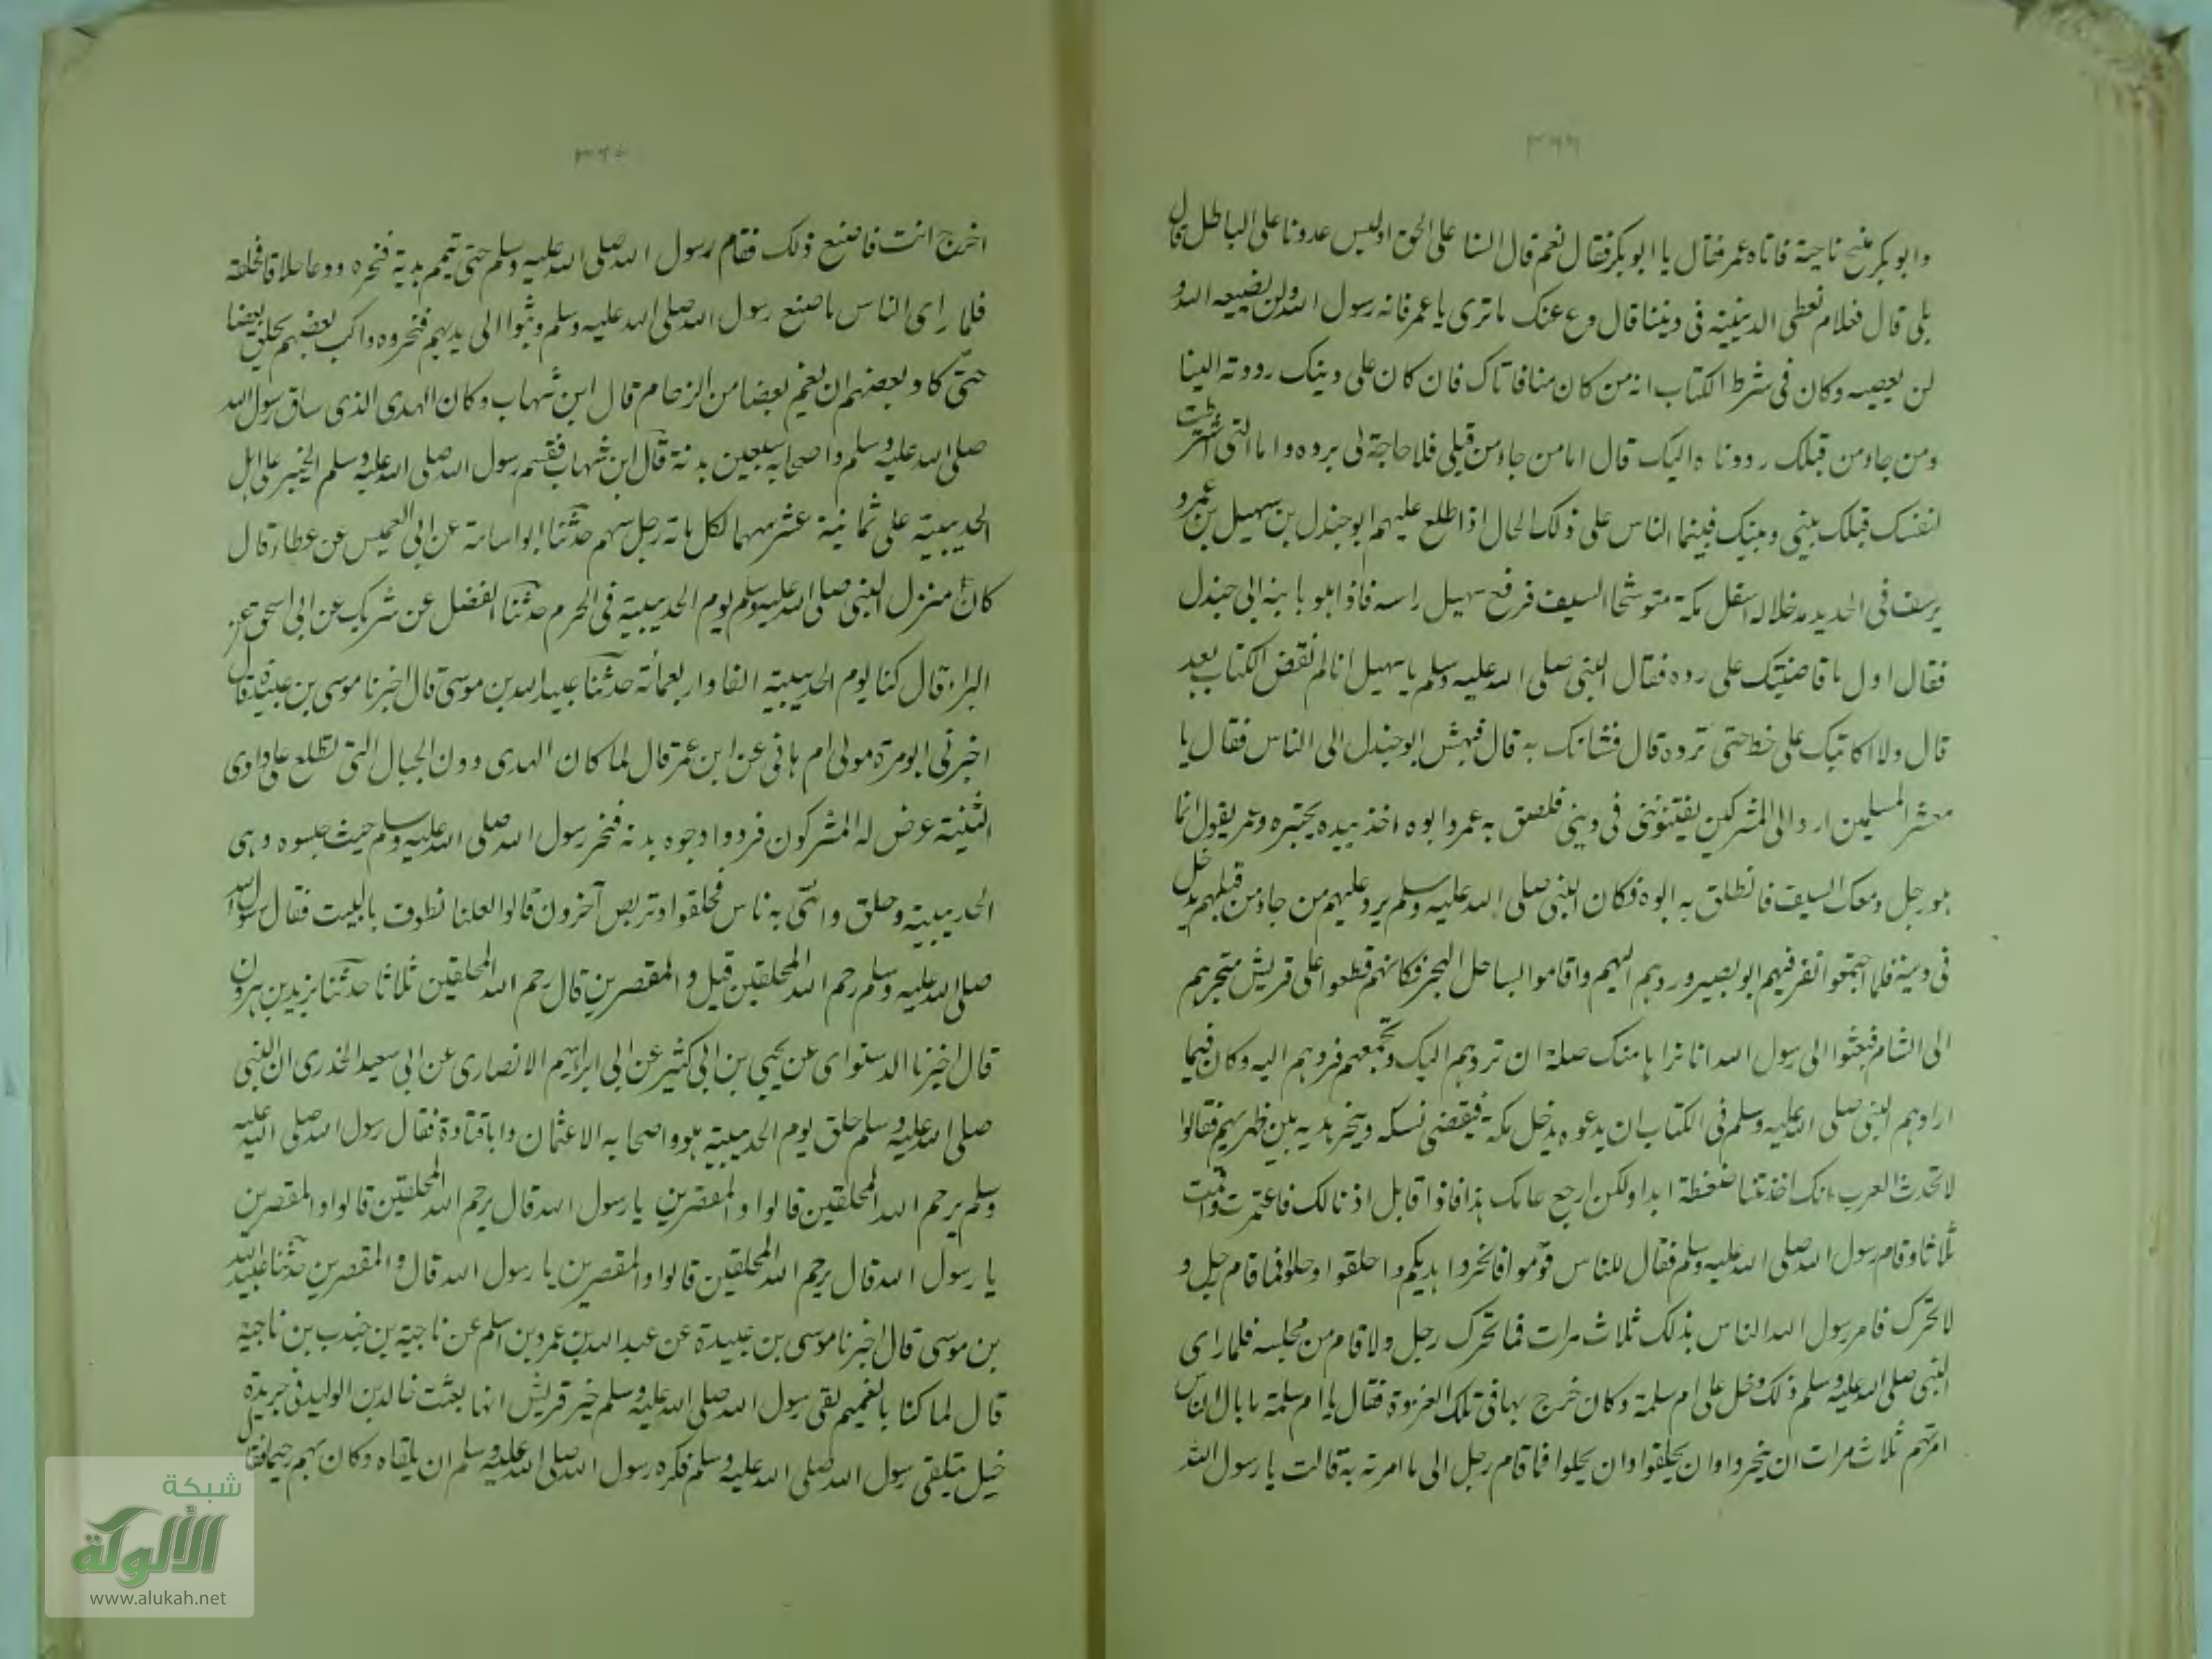 ٣٦٦
وابو بكر متنح ناحية فاتاه عمر فقال يا ابو بكر فقال نعم قال السنا على الحق اوليس عدونا على الباطل قال
بلى قال فعلام نعطى الدنيئة فى ديننا قال دع عنك ما ترى يا عمر فانه رسول الله ولن يضيعه الله و
لن يعصيه وكان فى شرط الكتاب انه من كان منا فاتاك فان كان على دينك رددته الينا
ومن جاء من قبلك رددناه اليك قال اما من جاء من قبلى فلا حاجة لى برده واما التى اشترطت
لنفسك فتلك بينى وبينك فبينما الناس على ذلك الحال اذا طلع عليهم ابو جندل بن سهيل بن عمرو
يرسف فى الحديد مدخلاله اسفل مكة متوشحا السيف فرفع سهيل راسه فاذا هو بابنه ابى جندل
فقال اول ما قاضيتك على رده فقال النبى صلى الله عليه وسلم يا سهيل انا لم نقض الكتاب بعد
قال ولا اكاتبك على خط حتى ترده قال فشانك به قال فبهش ابو جندل الى الناس فقال يا
معشر المسلمين ارد الى المشركين يفتنوننى فى دينى فلصق به عمر وابوه اخذ بيده يجتبره وعمر يقول انما
هو رجل ومعك السيف فانطلق به ابوه فكان النبى صلى الله عليه وسلم يرد عليهم من جاء من قبلهم يدخل
فى دينه فلما اجتمعوا نفر فيهم ابو بصير وردهم اليهم واقاموا بساحل البحر فكانهم قطعوا على قريش متجرهم
الى الشام فبعثوا الى رسول الله انا نراها منك صلة ان تردهم اليك وتجمعهم فردهم اليه وكان فيما
ارادهم النبى صلى الله عليه وسلم فى الكتاب ان يدعوه يدخل مكة فيقضى نسكه وينحر هديه بين ظهريهم فقالوا
لا تحدث العرب انك اخذتنا ضغطة ابدا ولكن ارجع عامك هذا فاذا قابل اذنا لك فاعتمرت واقمت
ثلاثا وقام رسول الله صلى الله عليه وسلم فقال للناس قوموا فانحروا هديكم واحلقوا وحلوا فما قام رجل و
لا تحرك فامر رسول الله الناس بذلك ثلاث مرات فما تحرك رجل ولا قام من مجلسه فلما راى
النبى صلى الله عليه وسلم ذلك دخل على ام سلمة وكان خرج بها فى تلك الغزوة فقال يا ام سلمة ما بال الناس
امرتهم ثلاث مرات ان ينحروا وان يحلقوا وان يحلوا فما قام رجل الى ما امرته به قالت يا رسول الله
اخرج انت فاصنع ذلك فقام رسول الله صلى الله عليه وسلم حتى تيمم هديه فنحره ودعا حلاقا فحلقه
فلما راى الناس ما صنع رسول الله صلى الله عليه وسلم وثبوا الى هديهم فنحروه واكب بعضهم يحلق بعضا
حتى كاد بعضهم ان يغم بعضا من الزحام قال ابن شهاب وكان الهدى الذى ساق رسول الله
صلى الله عليه وسلم واصحابه سبعين بدنة قال ابن شهاب فقسم رسول الله صلى الله عليه وسلم الخيبر على اهل
الحديبية على ثمانية عشر سهما لكل مائة رجل سهم حدثنا ابو اسامة عن ابى العميس عن عطاء قال
كان منزل النبى صلى الله عليه وسلم يوم الحديبية فى الحرم حدثنا الفضل عن شريك عن ابى اسحق عن
البراء قال كنا يوم الحديبية الفا واربعمائة حدثنا عبيد الله بن موسى قال اخبرنا موسى بن عبيدة قال
اخبرنى ابو مرة مولى ام هانى عن ابن عمر قال لما كان الهدى دون الجبال التى تطلع على وادى
الثنية عرض له المشركون فردوا وجوه بدنه فنحر رسول الله صلى الله عليه وسلم حيث حبسوه وهى
الحديبية وحلق وائتسى به ناس فحلقوا وتربص آخرون قالوا لعلنا نطوف بالبيت فقال رسول الله
صلى الله عليه وسلم رحم الله المحلقين قيل والمقصرين قال رحم الله المحلقين ثلاثا حدثنا يزيد بن هرون
قال اخبرنا الدستواى عن يحيى بن ابى كثير عن ابى ابراهيم الانصارى عن ابى سعيد الخدرى ان النبى
صلى الله عليه وسلم حلق يوم الحديبية هو واصحابه الا عثمان وابا قتادة فقال رسول الله صلى الله عليه
وسلم يرحم الله المحلقين قالوا والمقصرين يا رسول الله قال يرحم الله المحلقين قالوا والمقصرين
يا رسول الله قال يرحم الله المحلقين قالوا والمقصرين يا رسول الله قال والمقصرين حدثنا عبيد الله
بن موسى قال اخبرنا موسى بن عبيدة عن عبد الله بن عمرو بن اسلم عن ناجية بن جندب بن ناجية
قال لما كنا بالغميم لقى رسول الله صلى الله عليه وسلم خبر قريش انها بعثت خالد بن الوليد فى جريدة
خيل تتلقى رسول الله صلى الله عليه وسلم فكره رسول الله صلى الله عليه وسلم ان يلقاه وكان بهم رحيما فقال
شبكة
الألوكة
www.alukah.net